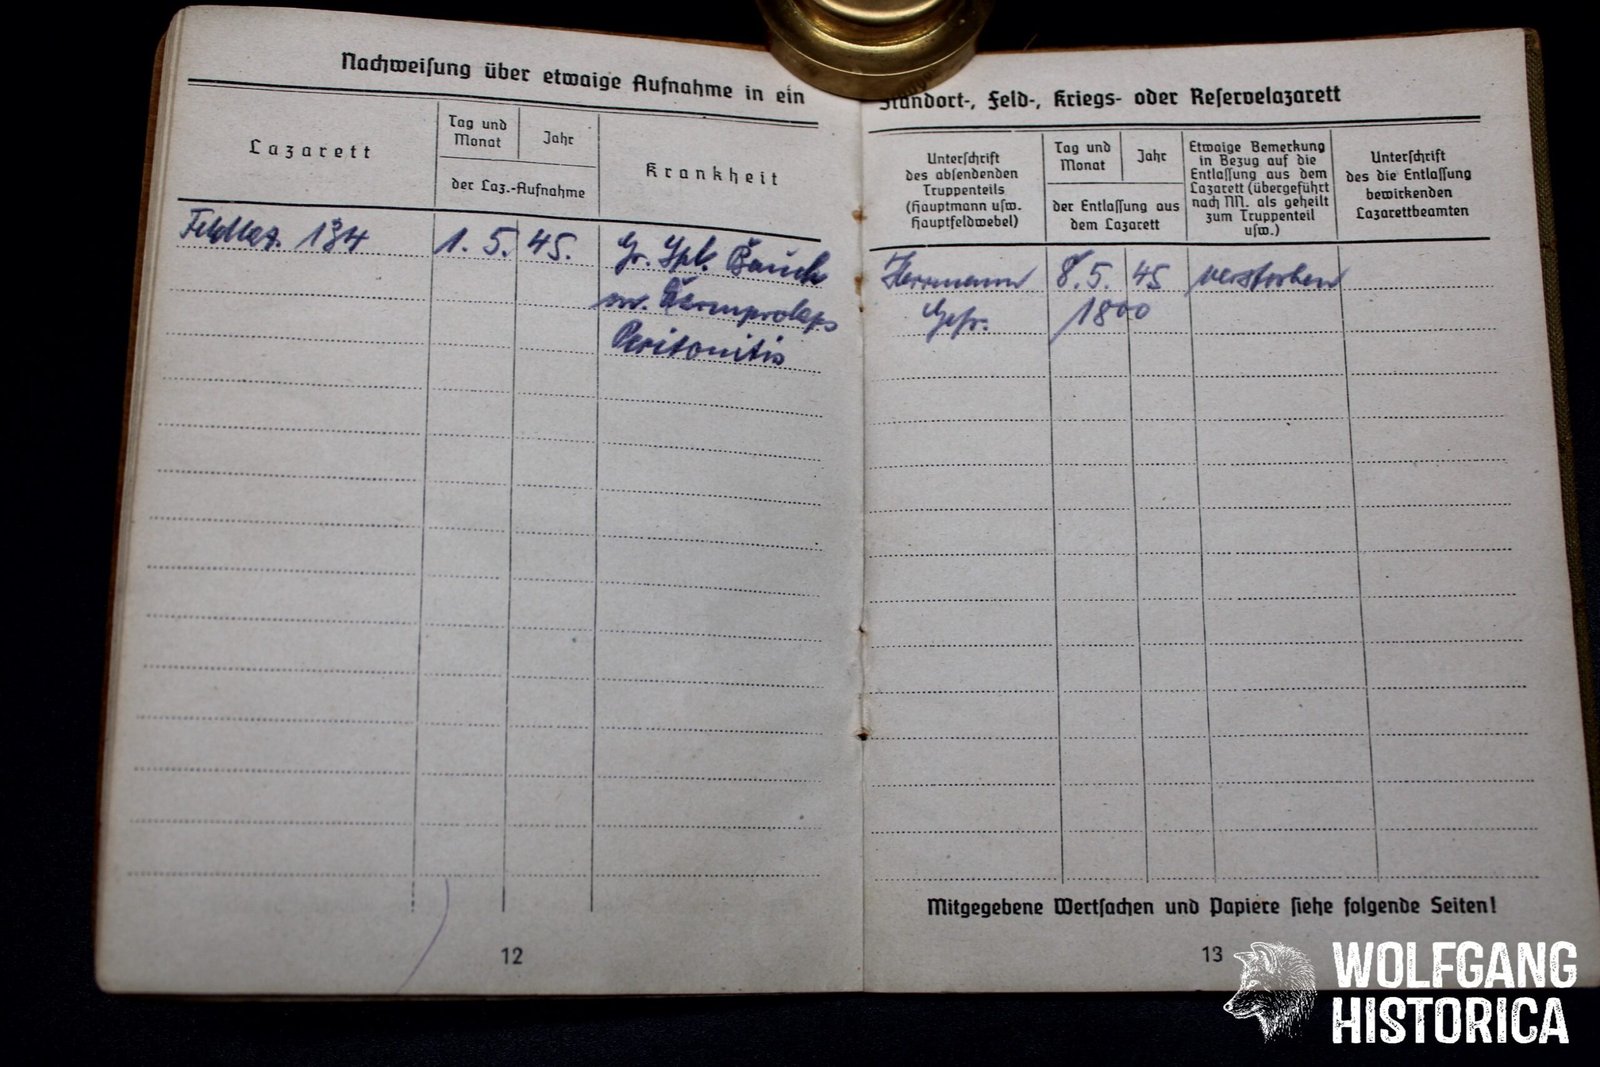 Nachweisung über etwaige Aufnahme in ein
Lazarett
Tag und
Monat
Jahr
der Laz.-Aufnahme
Krankheit
Feldlaz. 134
1. 5. 45.
Gr. Spl. Bauch
m. Darmprolaps
Peritonitis
12
Standort-, Feld-, Kriegs- oder Reservelazarett
Unterschrift
des absendenden
Truppenteils
(Hauptmann usw.
Hauptfeldwebel)
Tag und
Monat
Jahr
der Entlassung aus
dem Lazarett
Etwaige Bemerkung
in Bezug auf die
Entlassung aus dem
Lazarett (übergeführt
nach NN. als geheilt
zum Truppenteil
usw.)
Unterschrift
des die Entlassung
bewirkenden
Lazarettbeamten
Herrmann 8. 5. 45 verstorben
Gefr. 1800
Mitgegebene Wertsachen und Papiere siehe folgende Seiten!
13
WOLFGANG
HISTORICA